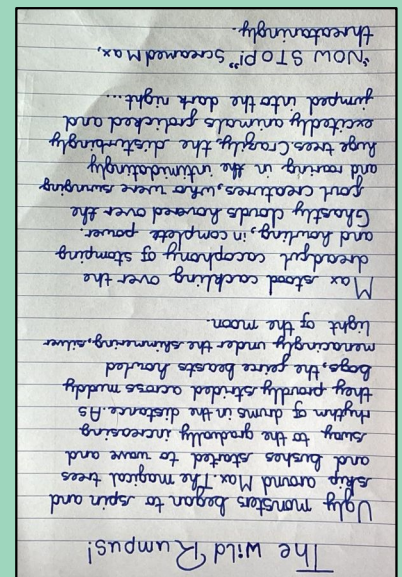 The wild Rumpus!
Ugly monsters began to spin and
skip around Max. The magical trees
and bushes started to wave and
sway to the gradually increasing
rhythm of drums in the distance. As
they proudly strided across muddy
bogs, the feirce beasts howled
menacingly under the shimmering, silver
light of the moon.
Max stood cackling over the
dreadful cacophony of stamping
and howling, in complete power.
Ghostly clouds hovered over the
foul creatures, who were swinging
and roaring in the intimidatingly
huge trees. Crazily, the disturbingly
excitedly animals frolicked and
jumped into the dark night...
"NOW STOP!" screamed Max,
threataningly.